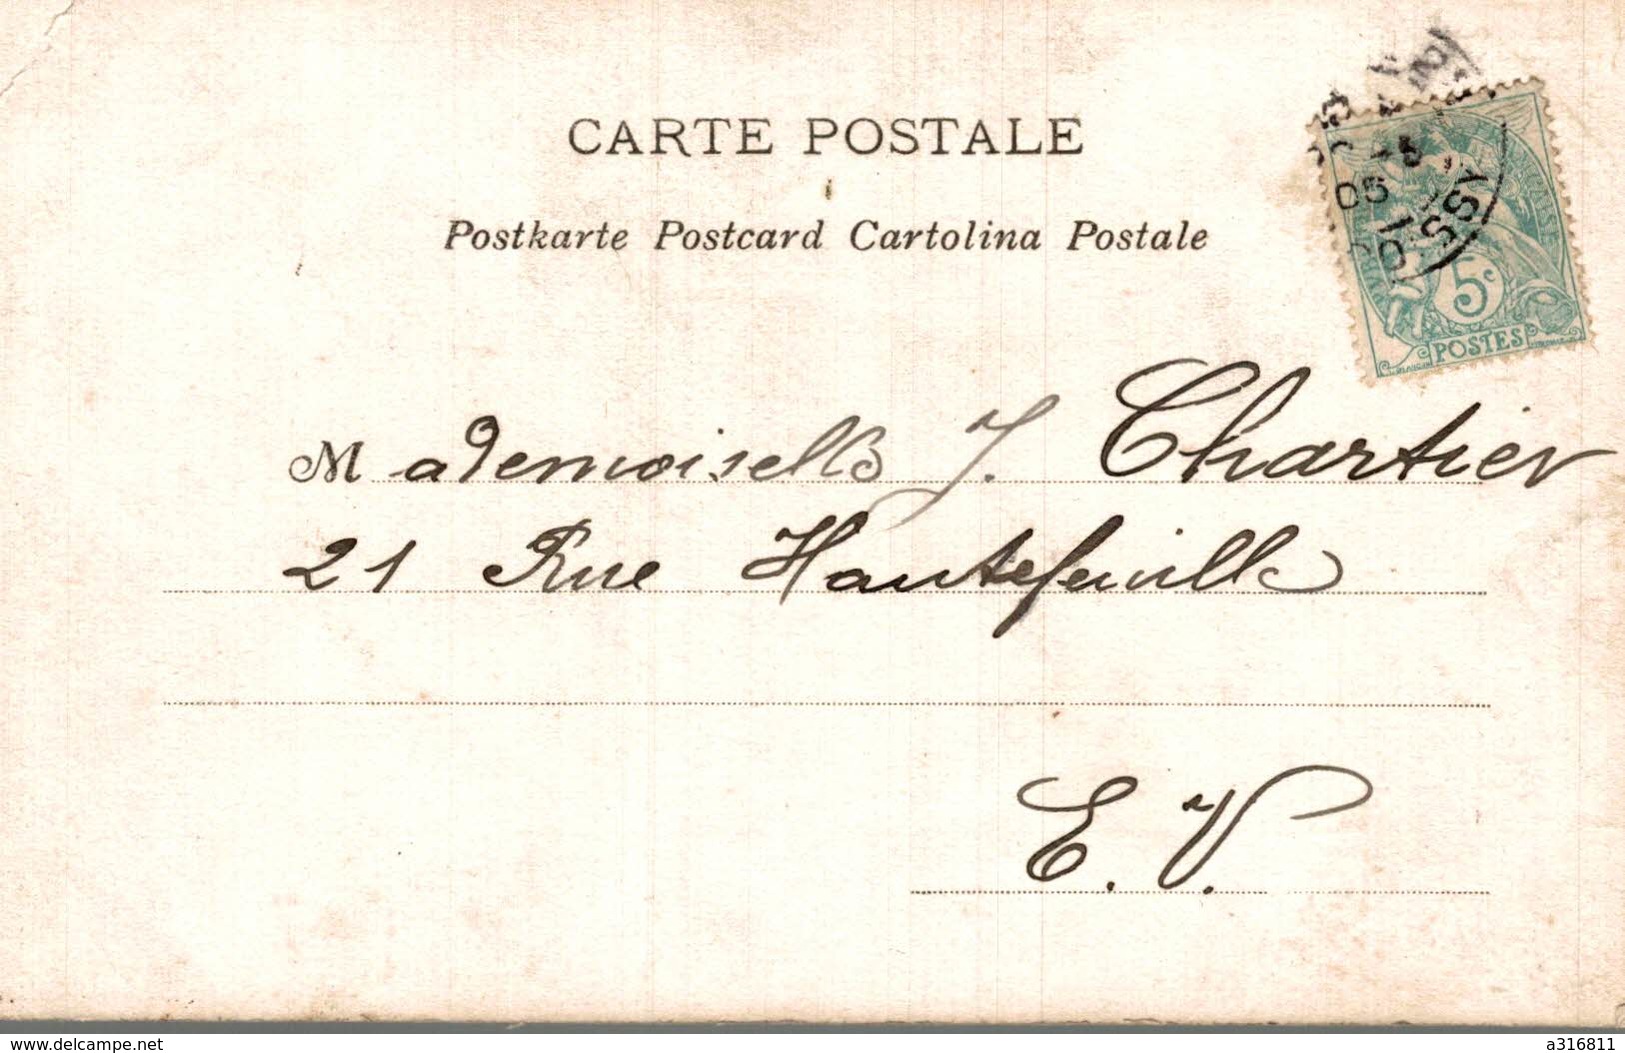 CARTE POSTALE
Postkarte Postcard Cartolina Postale
5c
POSTES
05
SSY
Mademoiselle J. Chartier
21 Rue Hautefeuille
E. V.
www.delcampe.net
a316811